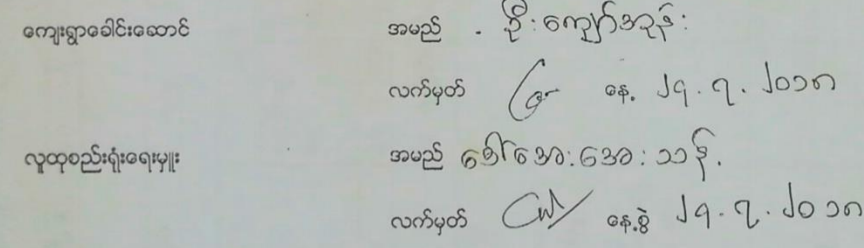 ကျေးရွာခေါင်းဆောင် အမည် . ဦးကျော်အုန်း
လက်မှတ် နေ့ ၂၇.၇.၂၀၁၈
လူထုစည်းရုံးရေးမှူး အမည် ဒေါ်အေးအေးသန်.
လက်မှတ် နေ့စွဲ ၂၇.၇.၂၀၁၈